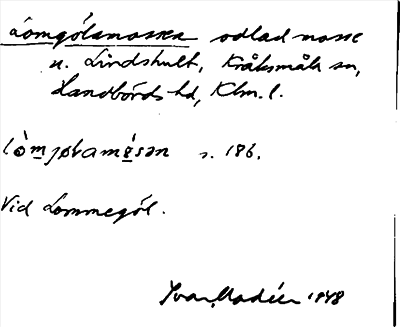 Lomgölsmossen odlad mosse
u. Lindshult, Kråksmåla sn,
Handbörds hd, Klm. l.
s. 186.
Vid Lommegöl.
Ivar Modéer 1948